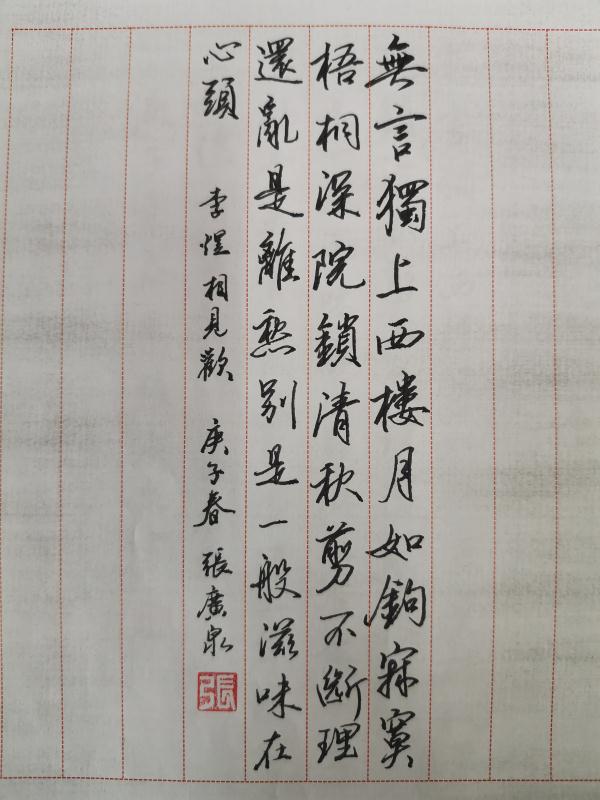 無言獨上西樓月如鉤寂寞
梧桐深院鎖清秋剪不斷理
還亂是離愁別是一般滋味在
心頭 李煜相見歡 庚子春 張廣泉
張